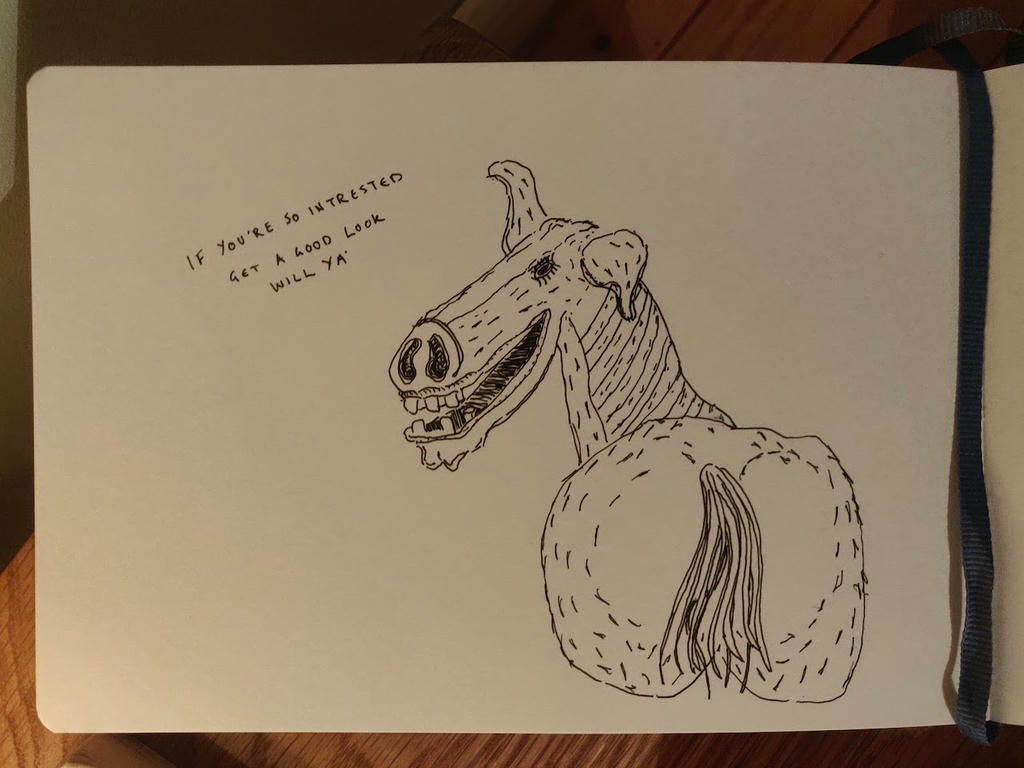 IF YOU'RE SO INTRESTED
GET A GOOD LOOK
WILL YA'